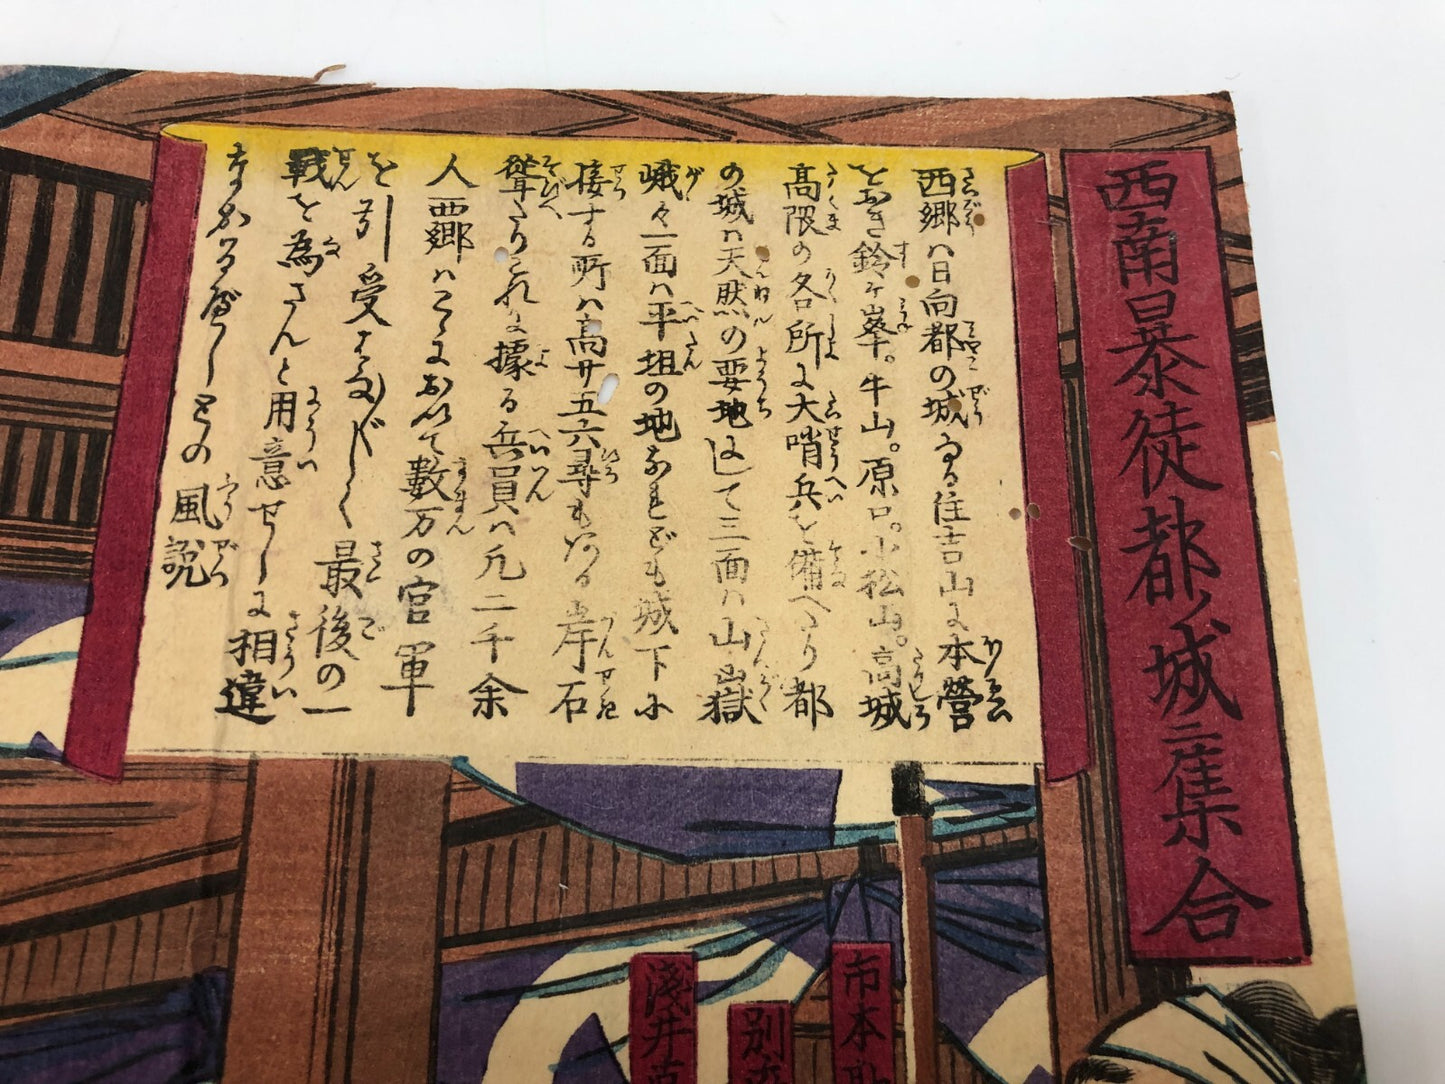 西南暴徒都ノ城ニ集合
西郷ハ日向都の城なる住吉山に本營
をおき鈴ヶ峯。牛山。原口。小松山。高城
高隈の各所に大哨兵を備へたり都
の城ハ天然の要地にして三面ハ山嶽
峨々一面ハ平坦の地なれども城下に
接する所ハ高サ五六尋もある岸石
聳えたりこれに據る兵員ハ凡二千余
人西郷ハこゝにおいて數万の官軍
を引受けなバ最後の一
戰を為さんと用意せしに相違
なかるべしとの風説
市本
別府
淺井